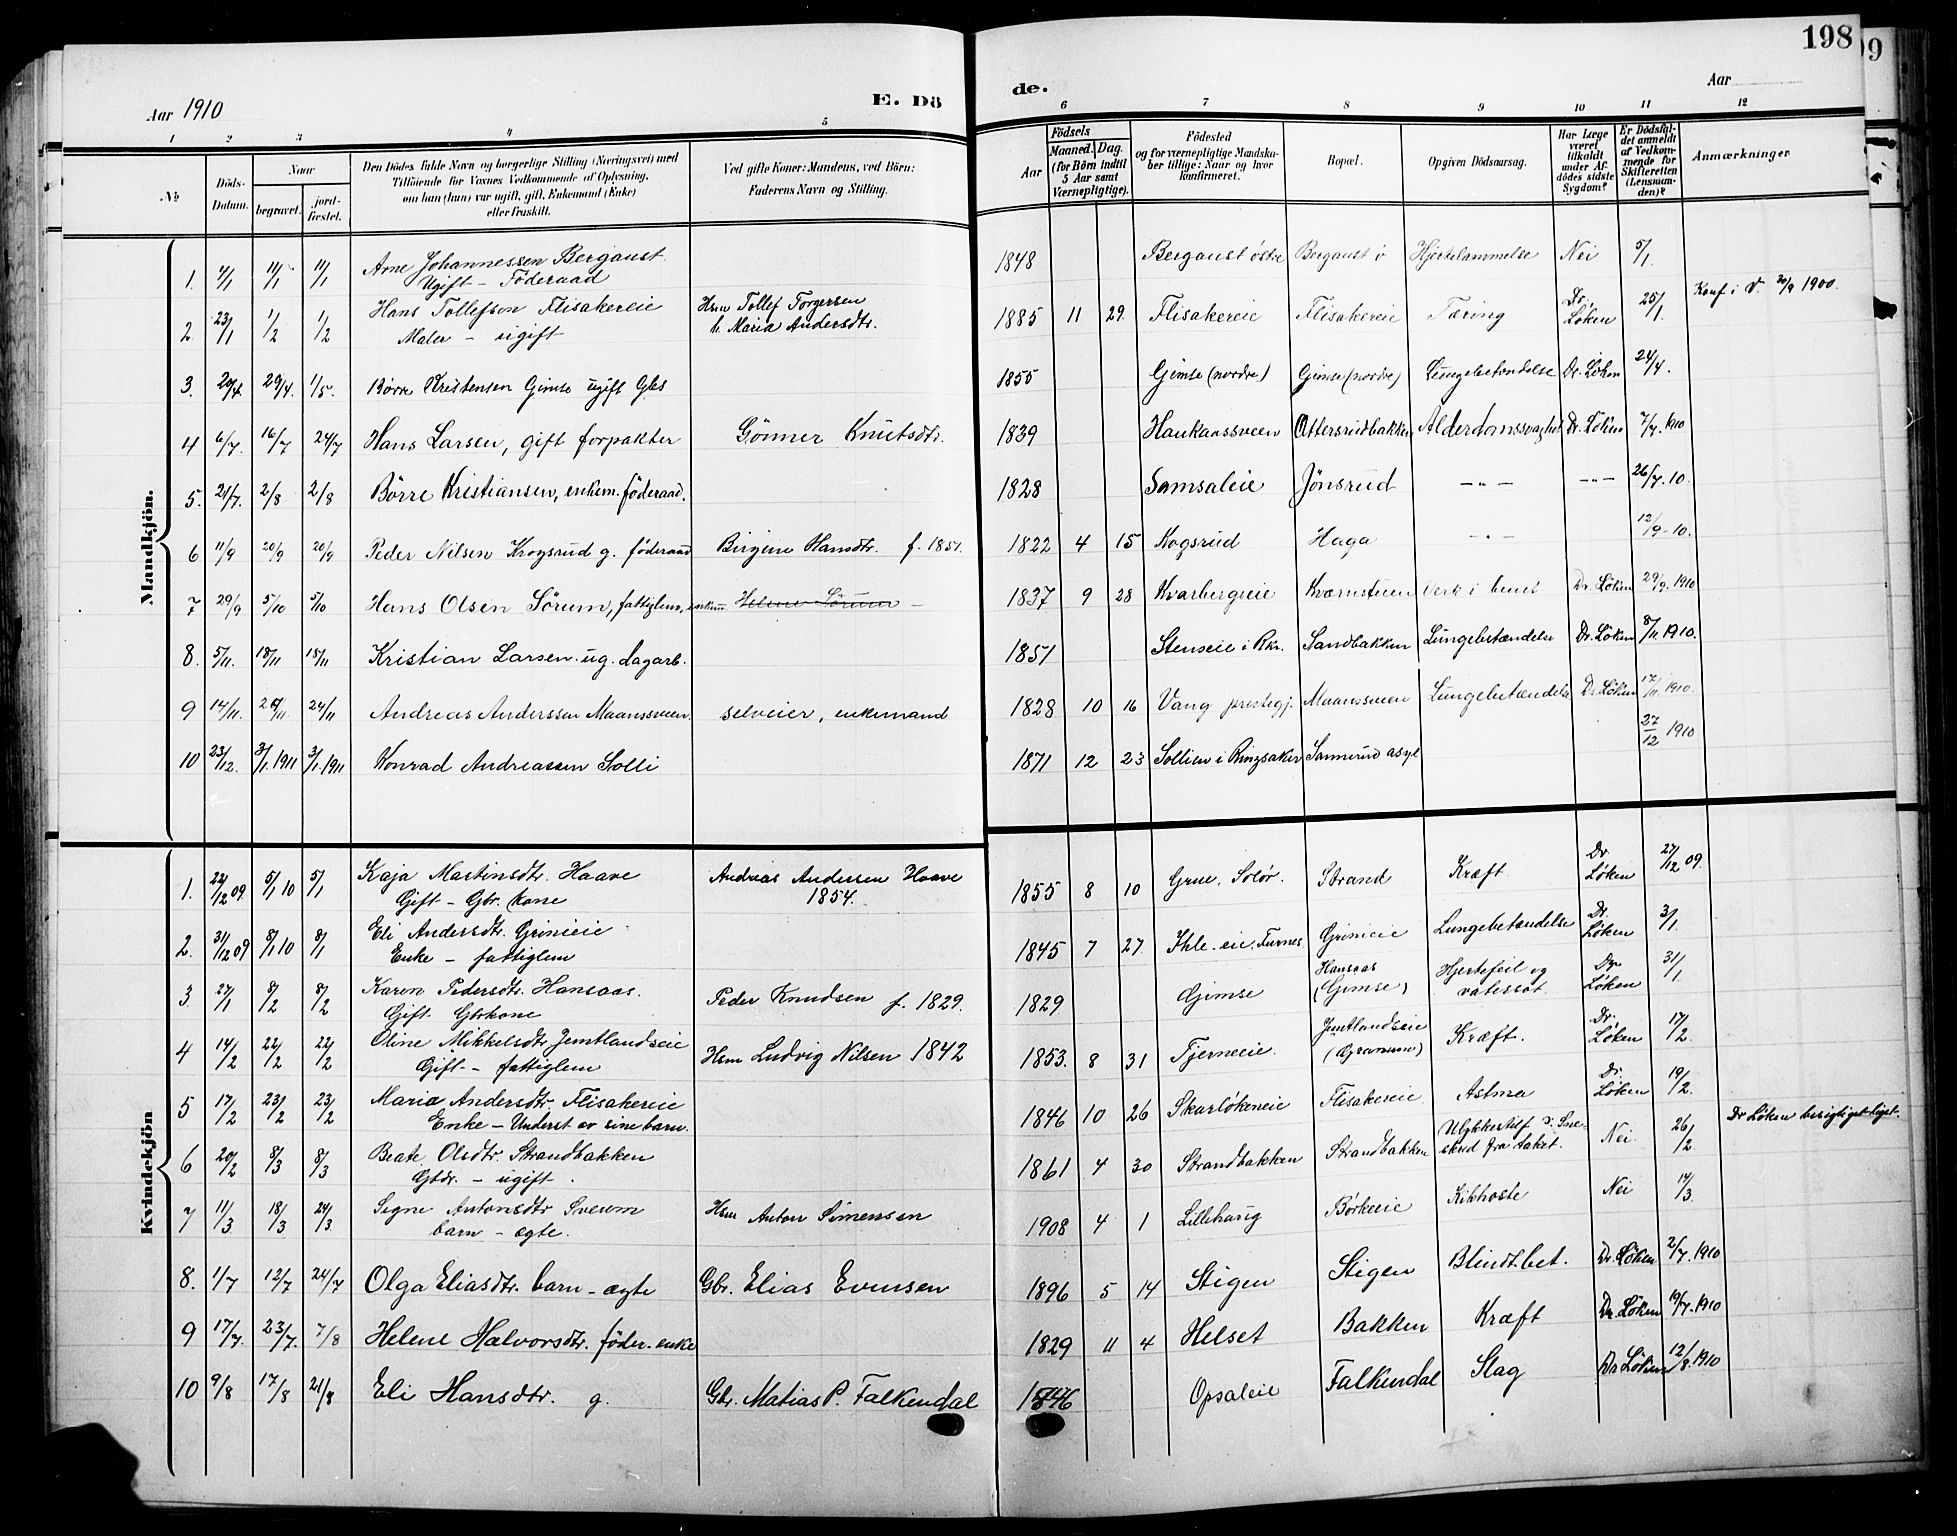 198
9
Aar 1910
E. Dö
de.
Aar
1 2 3 4 5 6 7 8 9 10 11 12
No
Döds-Datum.
Naar
begravet.
jord-fæstet.
Den Dödes fulde Navn og borgerlige Stilling (Næringsvei) med
Tilföiende for Voxnes Vedkommende af Oplysning,
om han (hun) var ugift, gift, Enkemand (Enke)
eller fraskilt.
Ved gifte Koner: Mandens, ved Börn:
Faderens Navn og Stilling.
Födsels
Aar
Maaned. Dag.
(for Börn indtil
5 Aar samt
Værnepligtige).
Födested
og for værnepligtige Mandska-
ber tillige: Naar og hvor
konfirmeret.
Bopæl.
Opgiven Dödsaarsag.
Har Læge
været
tilkaldt
under Af-
dödes sidste
Sygdom?
Er Dödsfal-
det anmeldt
af Vedkom-
mende for
Skifteretten
(Lensman-
den)?
Anmærkninger
Mandkjön.
1. 4/1 11/1 11/1 Arne Johannessen Bergaust 1848 Bergaust østre Bergaust ø Hjertelammelse Nei 5/1.
Ugift - Föderaad
2. 23/1 1/2 1/2 Hans Tollefson Flisakereie Hsm Tollef Torgersen 1885 11 29. Flisakereie Flisakereie Tæring Dr. Løken 25/1. Konf i V. 30/9 1900.
Maler - ugift h. Maria Andersdtr.
3. 20/4 29/4. 1/5. Börre Kristensen Gimse ugift Gbs 1855 Gimse (nordre) Gimse (nordre) Lungebetændelse Dr. Løken 24/4.
4 6/7. 16/7 24/7 Hans Larsen, gift forpakter Gönner Knutsdtr. 1839 Haukaassveen Ottersrudbakken Alderdomssvaghet Dr. Löken 7/7. 1910
5. 21/7. 2/8 2/8 Börre Kristiansen, enkem. föderaad. 1828 Samsaleie Jönsrud - " - - " - 26/7. 10.
6 11/9 20/9 20/9 Peder Nilsen Krogsrud g. föderaad Birgine Hansdtr. f. 1851. 1822 4 15 Kogsrud Haga - " - 12/9 - 10.
7 29/9 5/10 5/10 Hans Olsen Sörum, fattiglem, enkem. Helene Sörum - 1837 9 28 Kvarbergseie Kværnstuen Verk i benet Dr. Löken 29/9. 1910
8. 5/11. 18/11 18/11 Kristian Larsen. ug. dagarb. 1851 Stenseie i Rkr. Sandbakken Lungebetændelse Dr. Löken 8/11. 1910.
9 14/11. 20/11. 24/11 Andreas Anderssen Maanssveen. selveier, enkemand 1828 10 16 Vang prestegj. Maanssveen Lungebetændelse Dr. Löken 17/11. 1910.
10 23/12. 3/1. 1911 3/1. 1911 Konrad Andreassen Solli 1871 12 23 Sollien i Ringsaker Sannerud asyl 27/12 1910
Kvindekjön
1. 22/12 09. 5/1 10 5/1 Kaja Martinsdtr. Haave Andreas Andersen Haave 1855 8 10 Grue, Solör. Strand Kræft. Dr Löken 27/12 09.
Gift - Gbr. kone 1854.
2. 31/12 09 8/1 10 8/1 Eli Andersdtr. Grinieie 1845 7 27 Ihle-eie, Furnes Grinieie Lungebetændelse Dr. Löken 3/1.
Enke - fattiglem
3 27/1 8/2 8/2 Karen Pedersdtr. Hansaas. Peder Knudsen f. 1829. 1829 Gimse Hansaas (Gimse) Hjertefeil og vatersot. Dr. Löken 31/1.
Gift. Gbrkone
4 14/2 22/2 22/2 Oline Mikkelsdtr Jemtlandseie Hsm Ludvig Nilsen 1842 1853. 8 31 Tjerneeie. Jemtlandseie Kræft. Dr. Löken 17/2.
Gift - fattiglem
5 17/2 23/2 23/2 Maria Andersdtr Flisakereie 1846 10 26 Skarlökeneie Flisakereie Astma Dr. Löken 19/2.
Enke - Underst av sine barn.
6 20/2 8/3 8/3 Beate Olsdtr. Strandbakken 1861 4 30 Strandbakken Strandbakken Ulykkestilf v. Sne-skred fra taket. Nei 26/2 Dr Löken besigtiget liget.
Gbdr. - ugift.
7 11/3 18/3 24/3. Signe Antonsdtr Sveum Hsm Anton Simensen 1908 4 1 Lillehaug Börkeeie Kikhoste Nei 14/3.
barn - ægte.
8. 1/7 12/7 24/7 Olga Eliasdtr. barn - ægte Gbr. Elias Evensen 1896 5 14 Stigen Stigen Blindt.bet. Dr. Löken 2/7. 1910
9 17/7. 23/7. 7/8 Helene Halvorsdtr. föder. enke 1829 11 4 Helset Bakken Kræft Dr. Löken 19/7. 1910
10 9/8 17/8 21/8 Eli Hansdtr. g. Gbr. Matias P. Falkendal 1846 Opsaleie Falkendal Slag Dr Löken 12/8. 1910